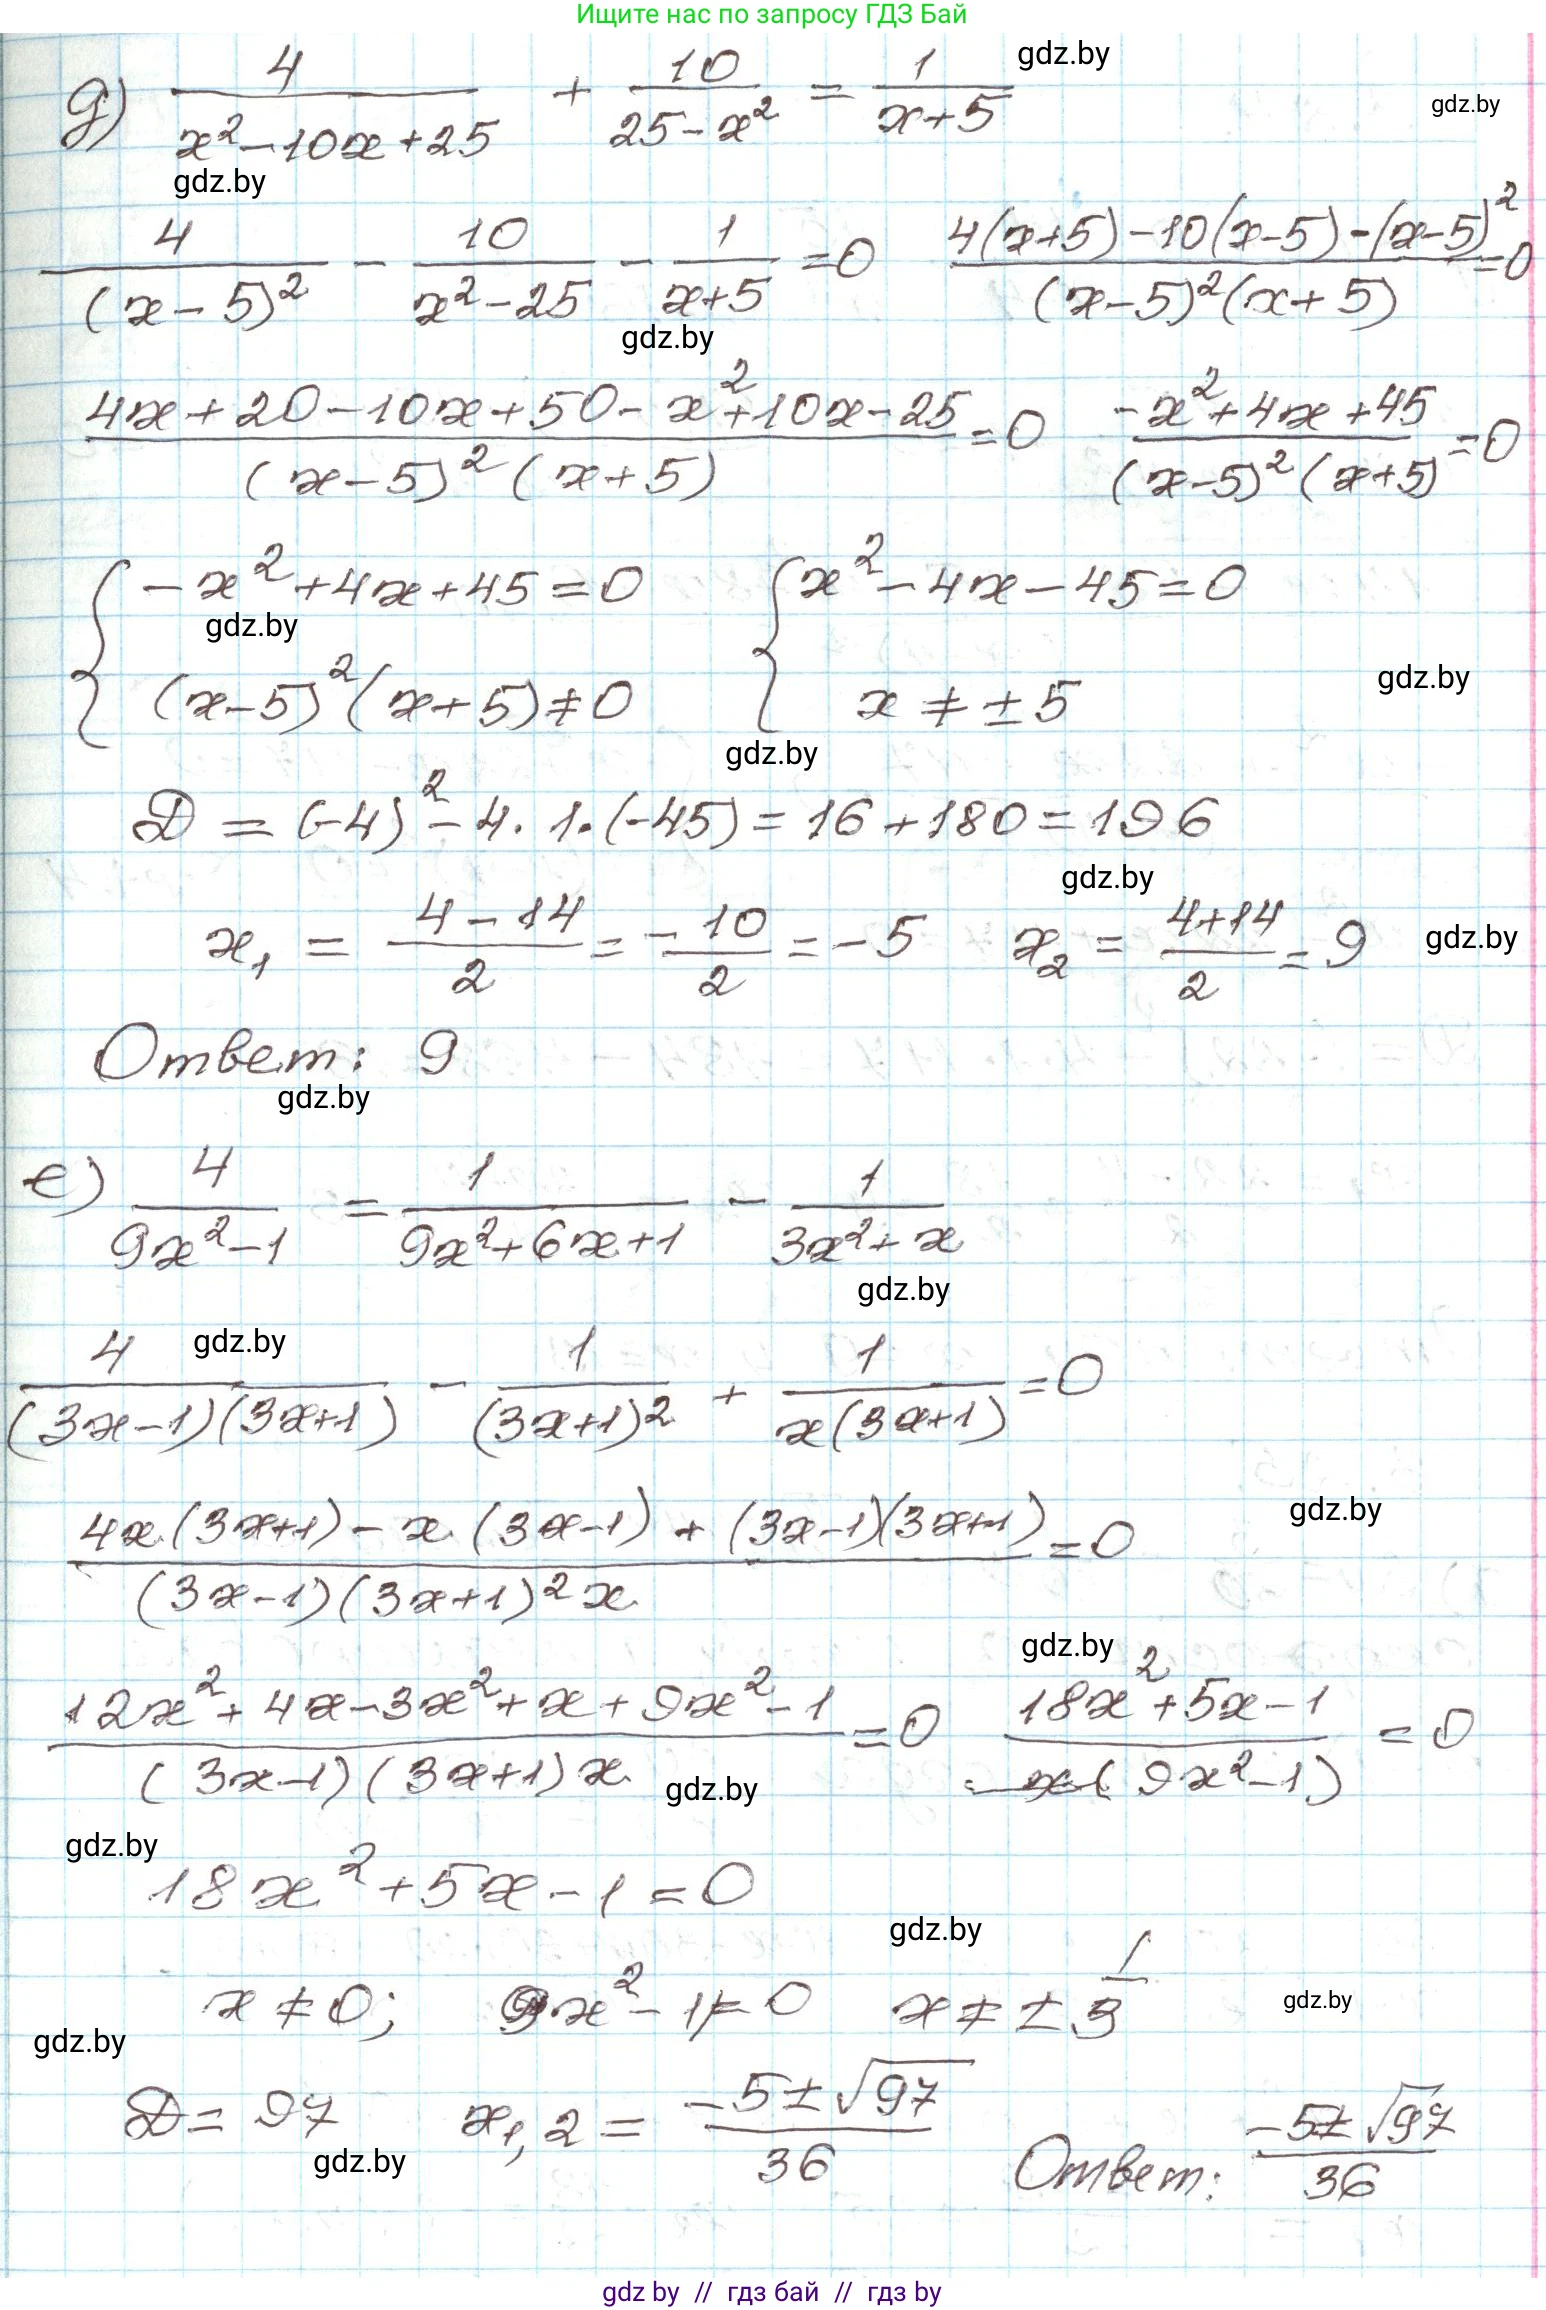 Ищите нас по запросу ГДЗ Бай
д) 4/(x²-10x+25) + 10/(25-x²) = 1/(x+5)
gdz.by
gdz.by
gdz.by
4/(x-5)² - 10/(x²-25) - 1/(x+5) =0 (4(x+5)-10(x-5)-(x-5)²)/((x-5)²(x+5)) =0
gdz.by
(4x+20-10x+50-x²+10x-25)/((x-5)²(x+5)) =0 (-x²+4x+45)/((x-5)²(x+5)) =0
{ -x²+4x+45=0 { x²-4x-45=0
gdz.by
(x-5)²(x+5)≠0 x≠±5
gdz.by
gdz.by
D = (-4)²-4·1·(-45)=16+180=196
gdz.by
x₁ = (4-14)/2 = -10/2 = -5 x₂ = (4+14)/2 = 9
gdz.by
Ответ: 9
gdz.by
е) 4/(9x²-1) = 1/(9x²+6x+1) - 1/(3x²+x)
gdz.by
gdz.by
4/((3x-1)(3x+1)) - 1/(3x+1)² + 1/(x(3x+1)) =0
gdz.by
(4x(3x+1)-x(3x-1)+(3x-1)(3x+1))/((3x-1)(3x+1)²x) =0
gdz.by
(12x²+4x-3x²+x+9x²-1)/((3x-1)(3x+1)x) =0 (18x²+5x-1)/(x(9x²-1)) =0
gdz.by
gdz.by
18x²+5x-1=0
gdz.by
x≠0; 9x²-1≠0 x≠±1/3
gdz.by
gdz.by
D=97 x₁,₂ = (-5±√97)/36 Ответ: (-5±√97)/36
gdz.by
gdz by // гдз бай // гдз by